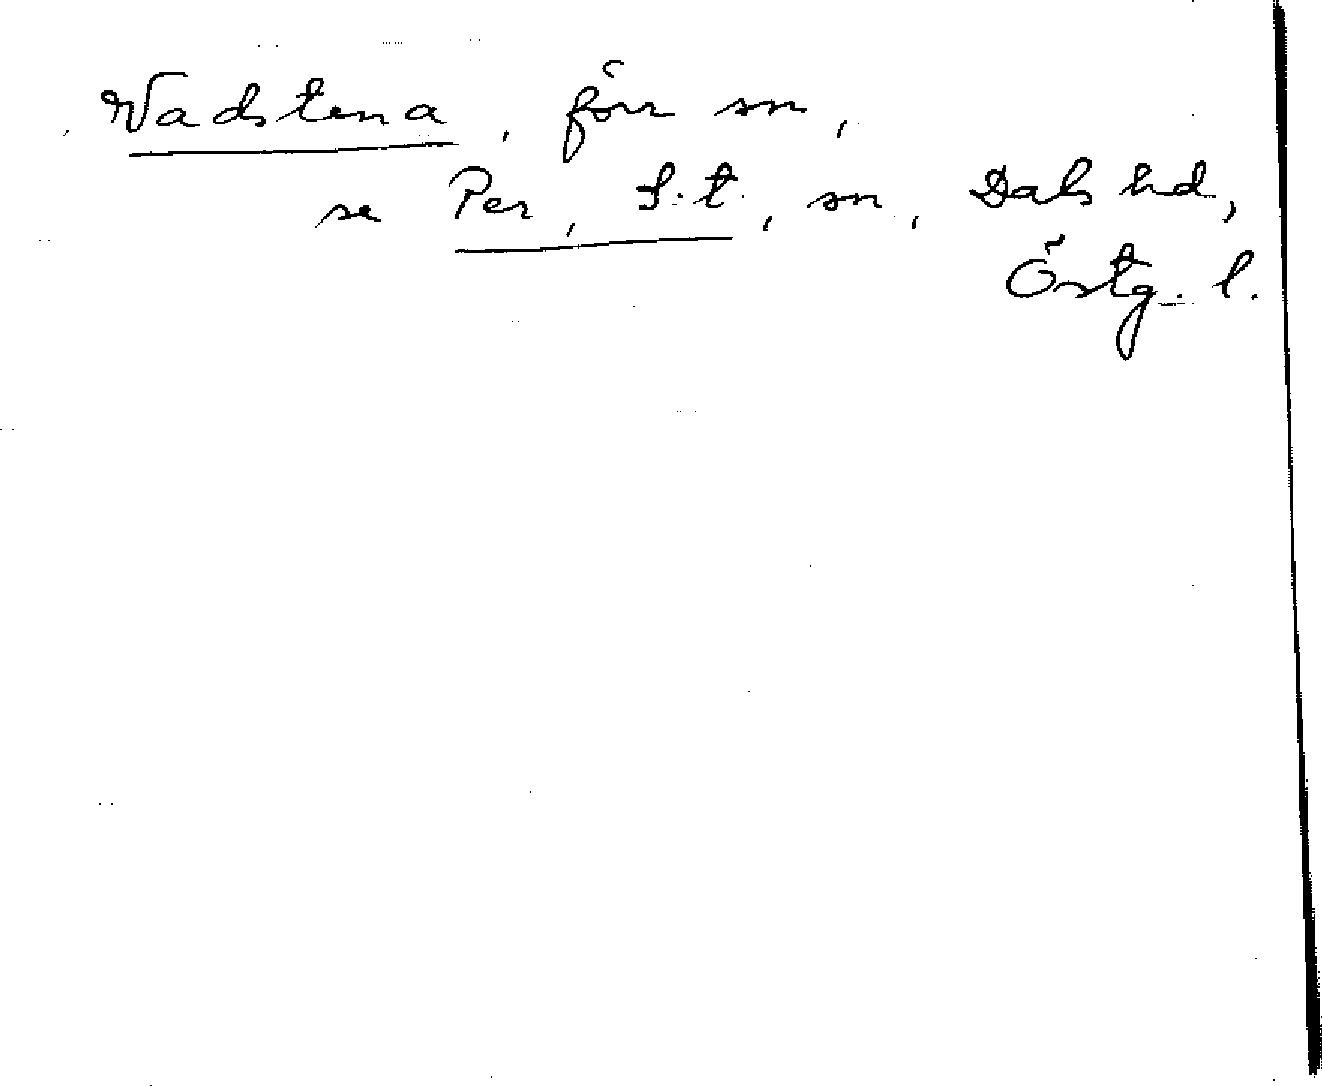 Vadstena, förr sn,
se Per, S:t, sn, Dals hd,
Östg. l.